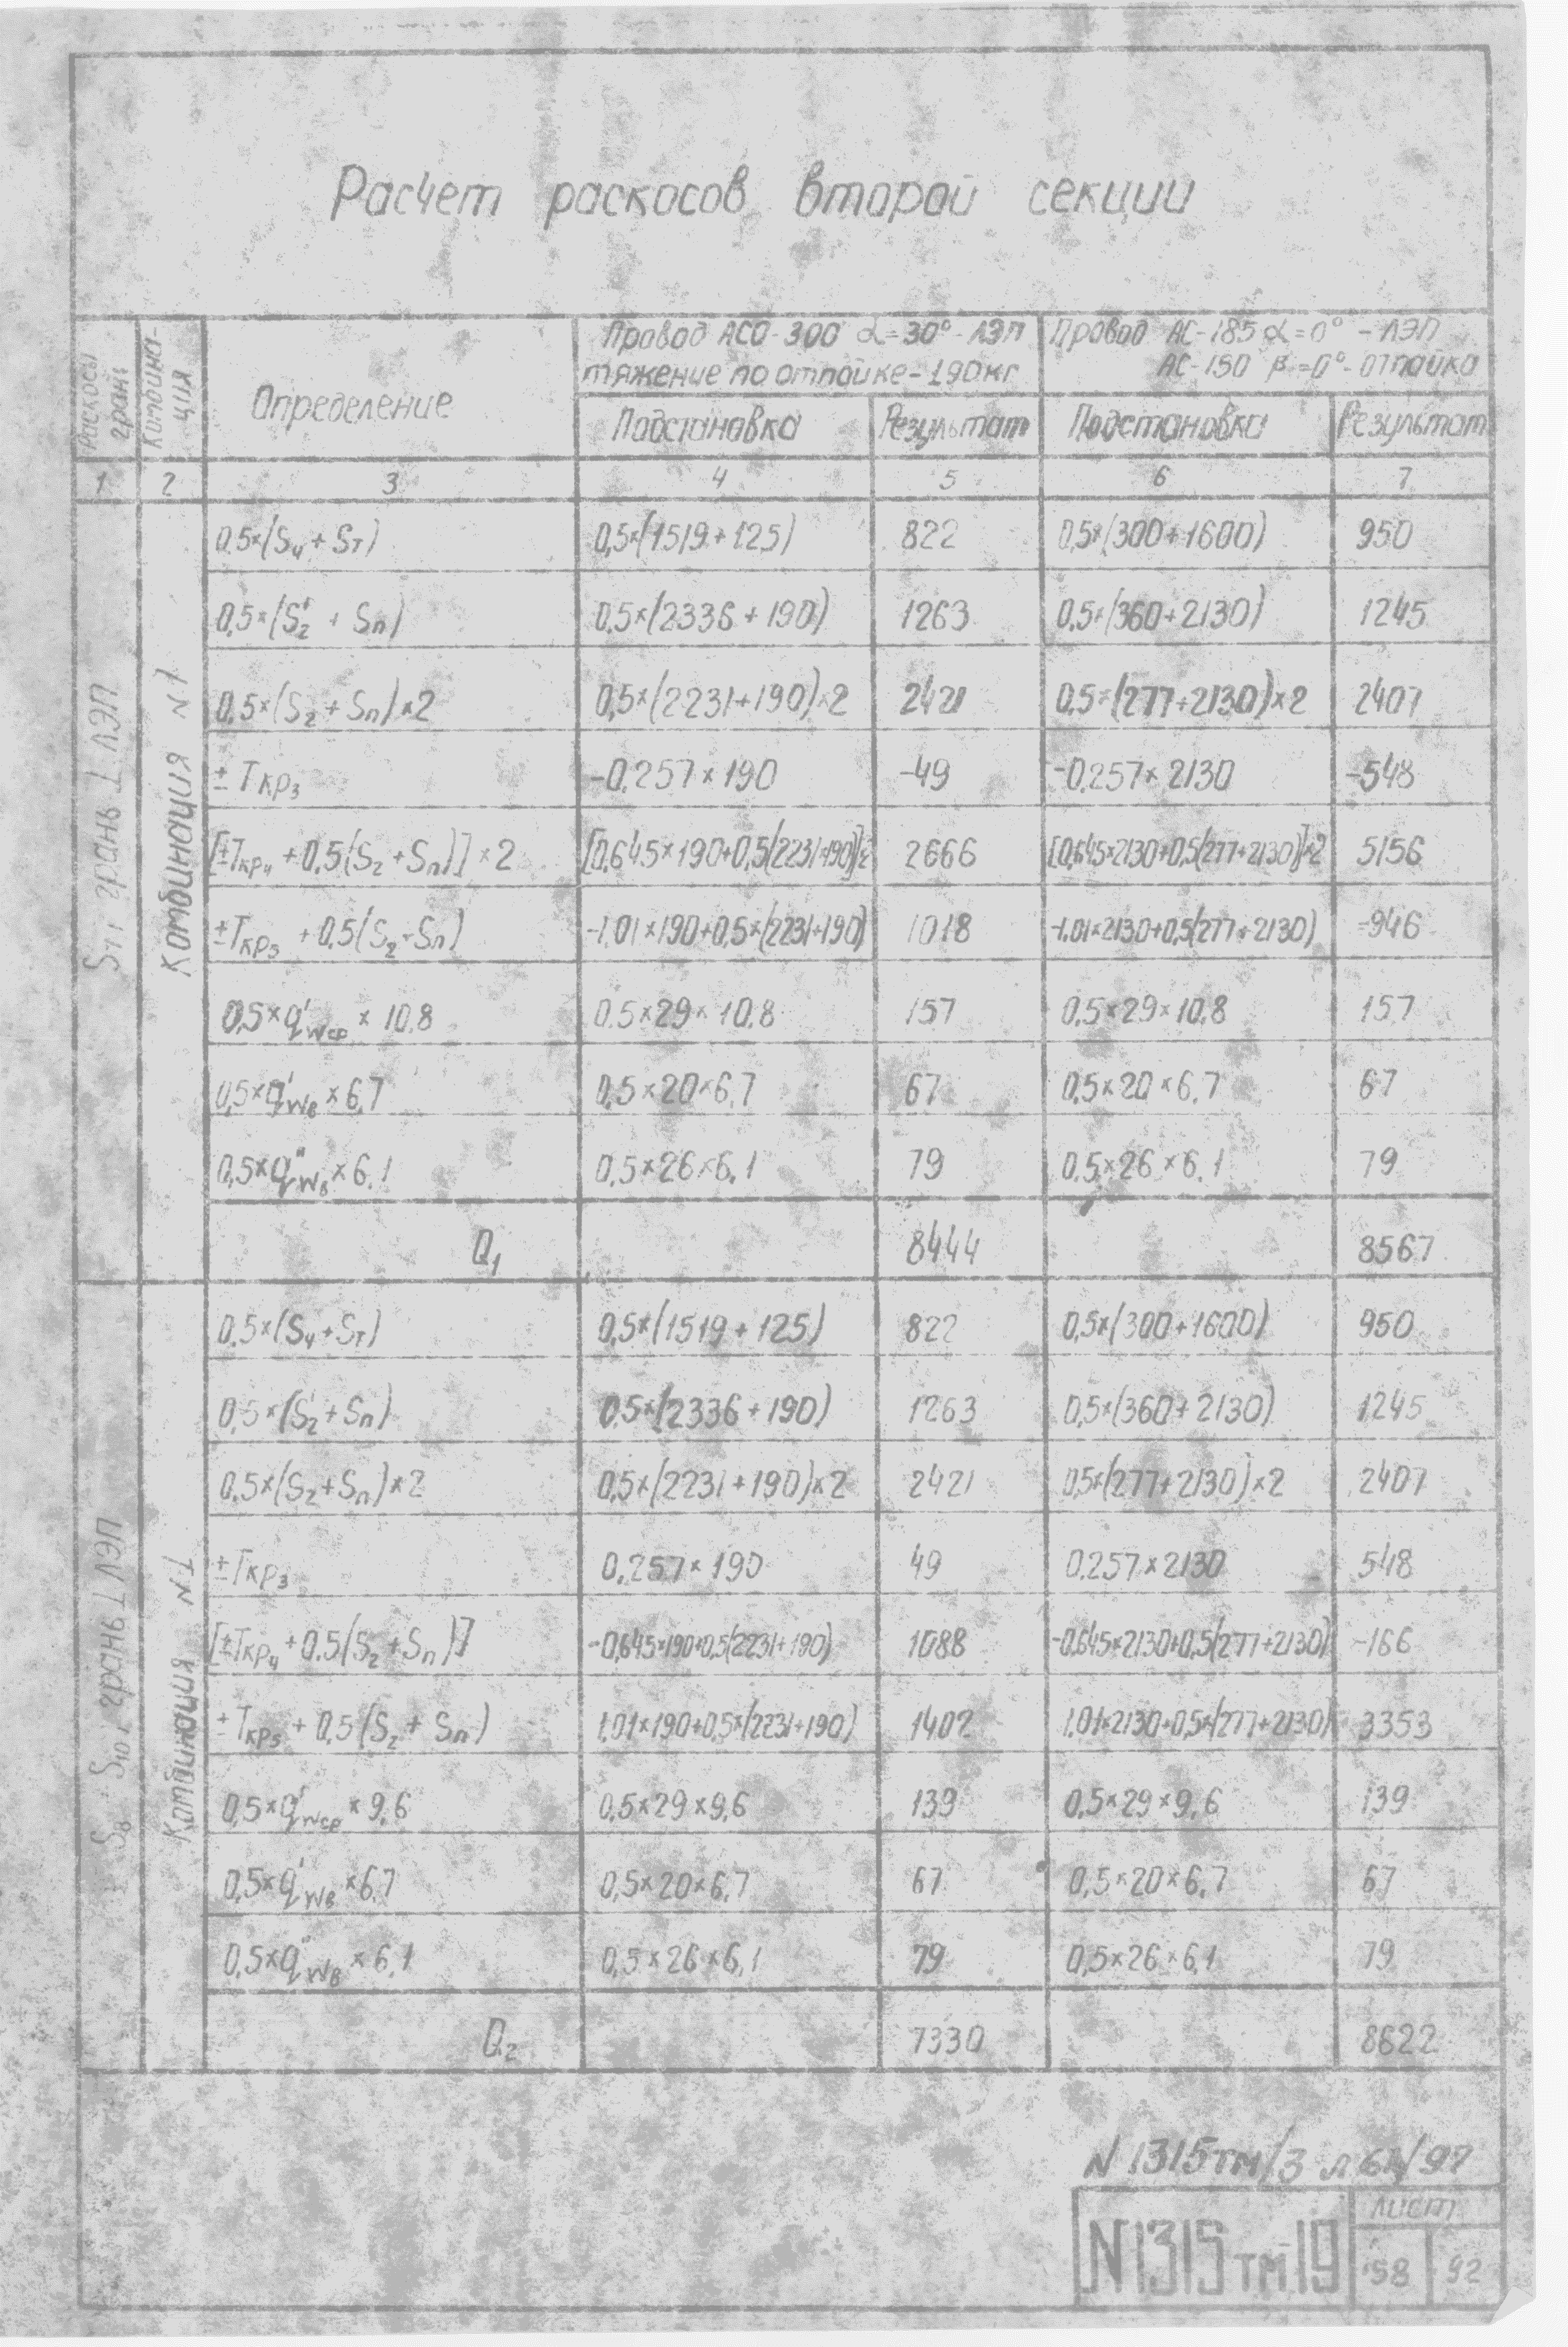 Расчет раскосов второй секции
Раскосы гран:
Комбина-
ция
Определение
Провод АСО-300 α=30°-ЛЭП
тяжение по отпайке-190кг
Провод АС-185 α=0° - ЛЭП
АС-150 β=0°-отпайка
Подстановка Результат Подстановка Результат
1 2 3 4 5 6 7
S11 грань ⊥ ЛЭП
Комбинация N1
0.5×(S4 + Sт) 0,5×(1519+125) 822 0,5×(300+1600) 950
0,5×(S'2 + Sп) 0.5×(2336 + 190) 1263 0.5×(360+2130) 1245
0.5×(S2 + Sп)×2 0,5×(2231+190)×2 2421 0.5×(277+2130)×2 2407
± Tкр3 -0.257×190 -49 -0.257×2130 -548
[±Tкр4 + 0.5(S2+Sп)]×2 [0,645×190+0,5(2231+190)]×2 2666 [0,645×2130+0,5(277+2130)]×2 5156
±Tкр5 + 0.5(S2+Sп) -1.01×190+0.5×(2231+190) 1018 -1.01×2130+0,5(277+2130) -946
0,5×q'wср × 10.8 0.5×29×10.8 157 0.5×29×10.8 157
0,5×q'wв×6,7 0.5×20×6,7 67 0.5×20×6,7 67
0,5×q"wв×6.1 0,5×26×6.1 79 0.5×26×6.1 79
Q1 8444 8567
S8 S10, грань ⊥ ЛЭП
Комбинация N1
0.5×(S4+Sт) 0,5×(1519+125) 822 0,5×(300+1600) 950
0,5×(S'2+Sп) 0.5×(2336+190) 1263 0,5×(360+2130) 1245
0.5×(S2+Sп)×2 0,5×(2231+190)×2 2421 0,5×(277+2130)×2 2407
±Tкр3 0.257×190 49 0.257×2130 548
[±Tкр4 + 0.5(S2+Sп)] -0,645×190+0,5(2231+190) 1088 -0.645×2130+0,5(277+2130) -166
±Tкр5 + 0,5(S2+ Sп) 1.01×190+0.5×(2231+190) 1402 1.01×2130+0,5×(277+2130) 3353
0,5×q'wср×9.6 0.5×29×9,6 139 0.5×29×9,6 139
0,5×q'wв×6,7 0,5×20×6,7 67 0,5×20×6,7 67
0,5×q"wв×6,1 0,5×26×6,1 79 0,5×26×6,1 79
Q2 7330 8622
N 1315тм/3 л 61/97
N1315тм-19
лист
58 92